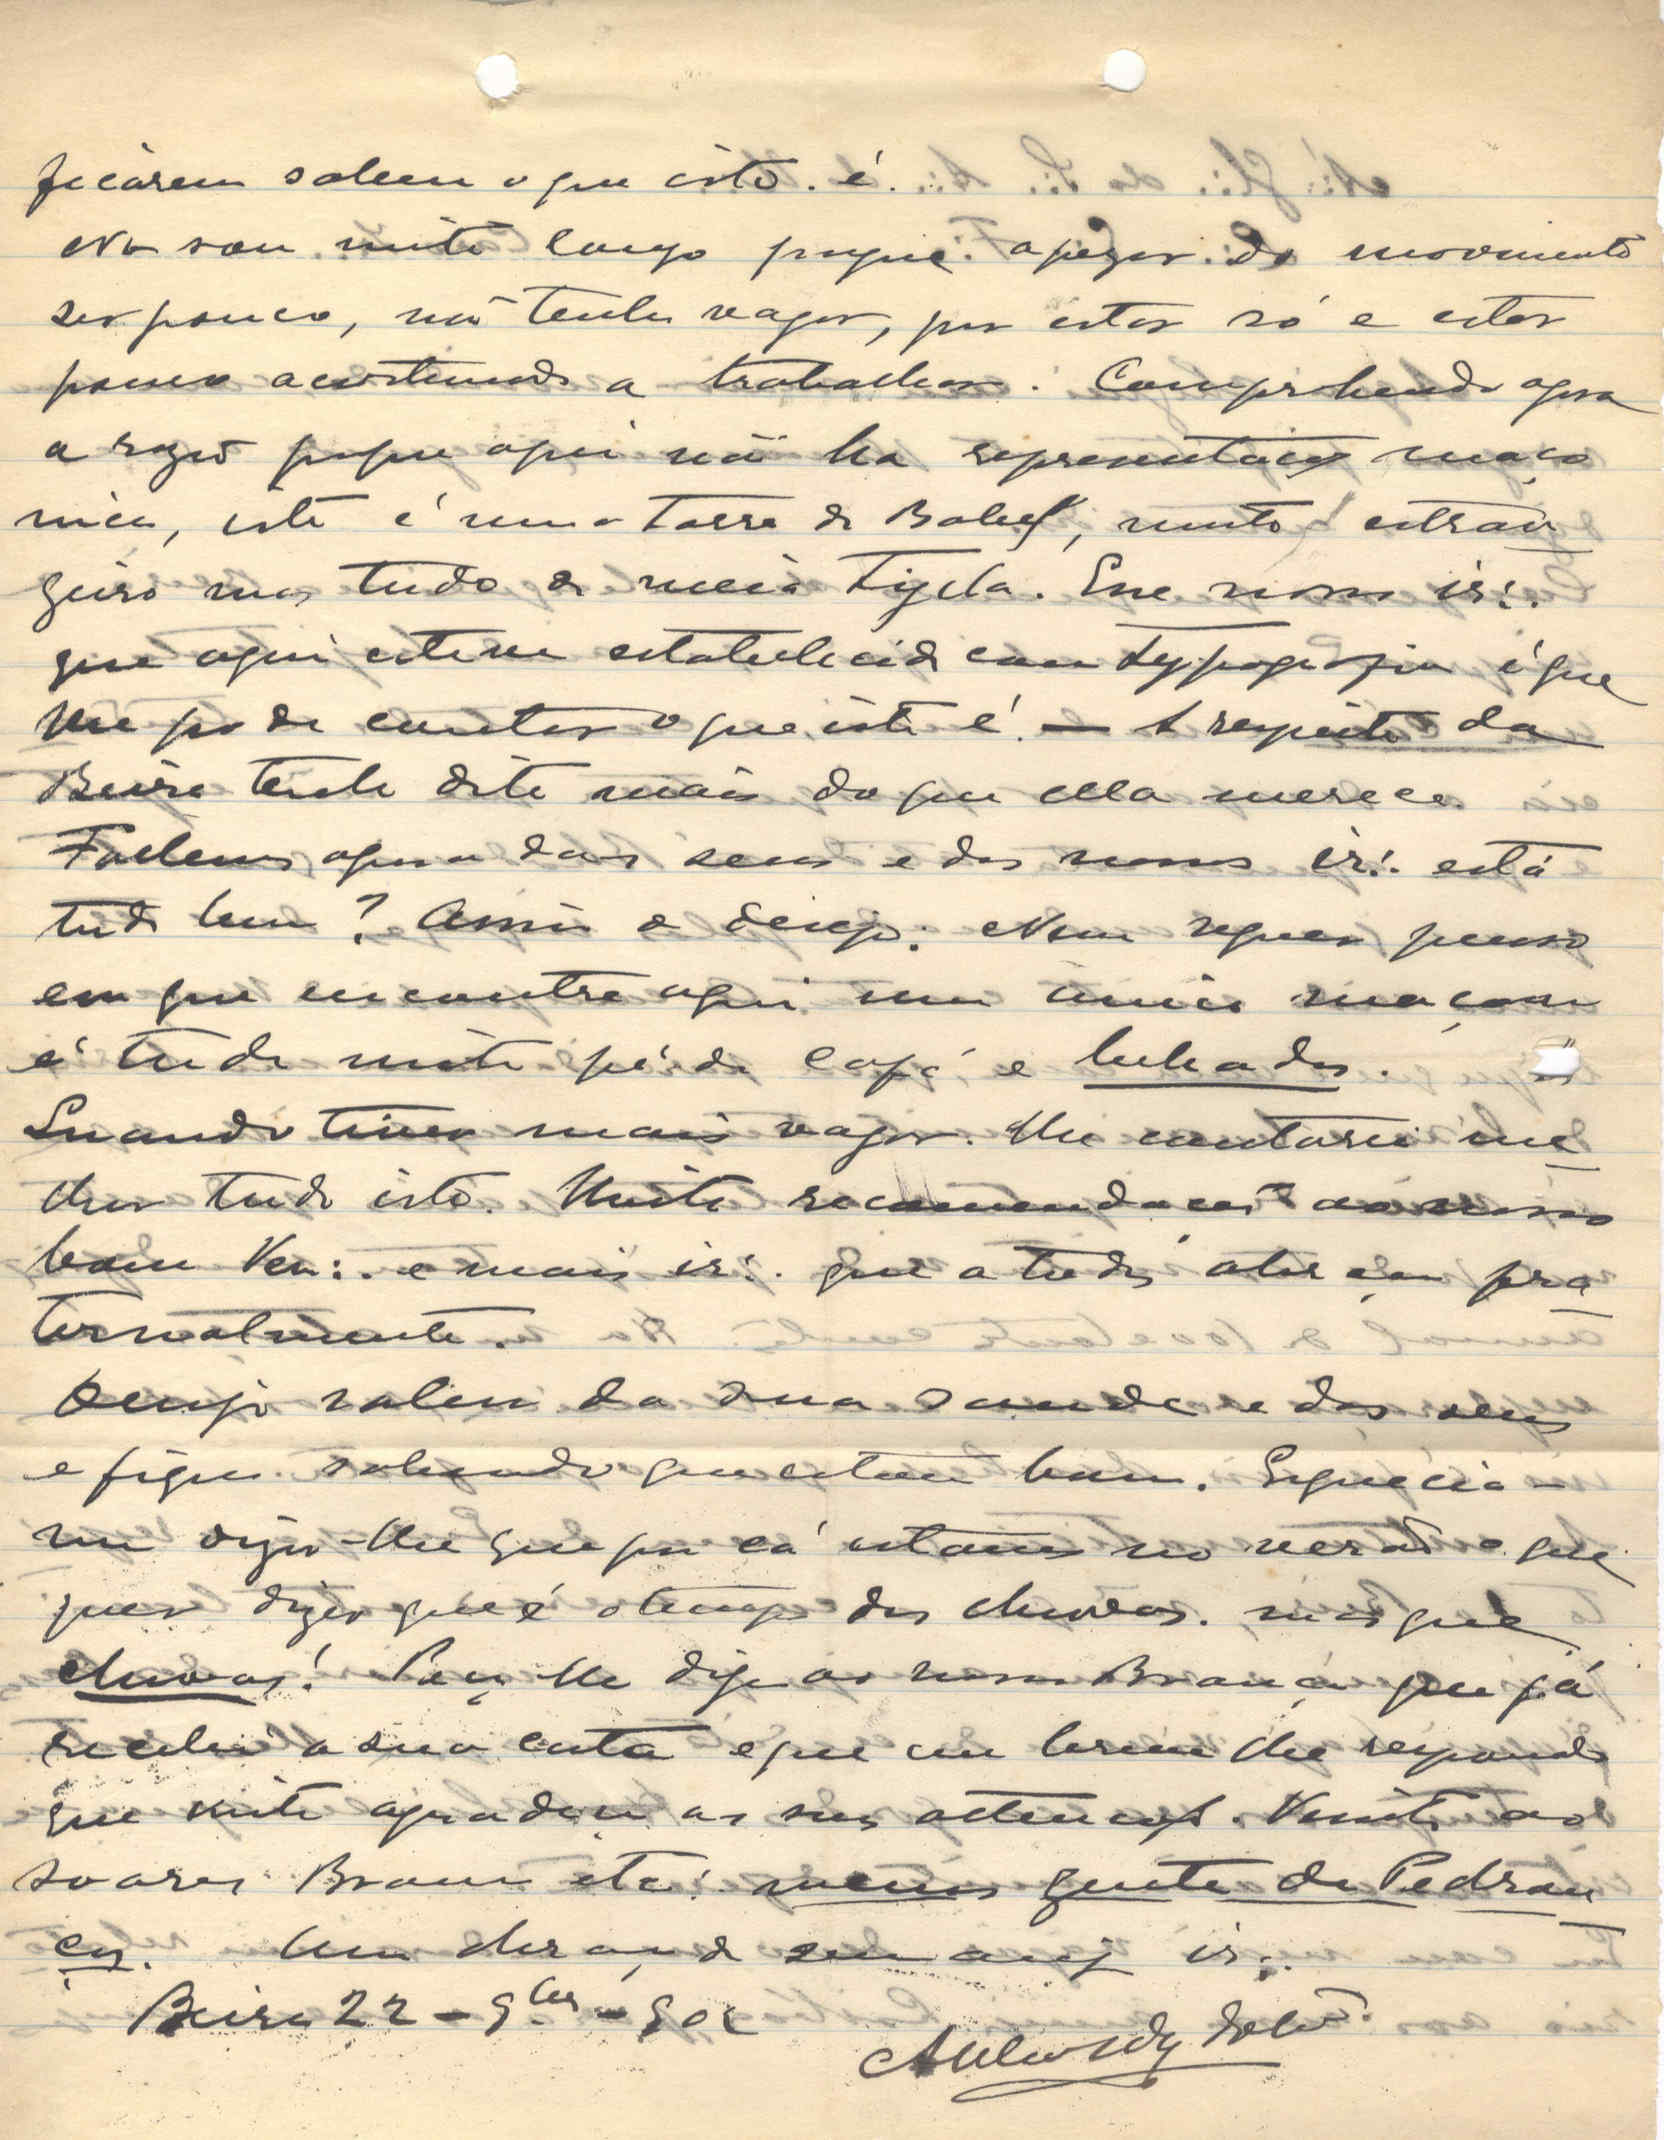 ficárem sabem o que isto é.
Não sou muito longo porque apezar do movimento
ser pouco, não tenho vagar, por estar só e estar
pouco acostumado a trabalhar. Comprehendo agora
a razão porque aqui não ha representação maço
nica, isto é uma Torre de Babel, muito estran
geiro mas tudo de meia tigela. Esse nosso ir∴
que aqui esteve estabelecido com typographia é que
lhe pode contar o que isto é. — A respeito da
Beira tenho dito mais do que ella merece.
Fallemos agora dos seus e dos nossos ir∴ está
tudo bem? Assim o desejo. Nem sequer penso
em que encontre aqui um unico maçon
é tudo muito pé de café e
Quando tiver mais vagar lhe contarei me
lhor tudo isto. Muitas recommendações ao nosso
bom Ven∴ e mais ir∴ que a todos abraço fra
ternalmente.
Desejo saber da sua saude e dos seus
e fique sabendo que estou bom. Esquecia-
me dizer-lhe que por cá estamos no verão o que
quer dizer que é o tempo das chuvas. mas que
chuvas! Peço-lhe diga ao nosso Branco que já
recebi a sua carta e que em breve lhe respondo
que muito agradeço as suas attenções. Visite ao
Soares Branco etc. menos gente de Pedrou
ços. Um abraço de seu amº ir∴
Beira 22-9bro-902